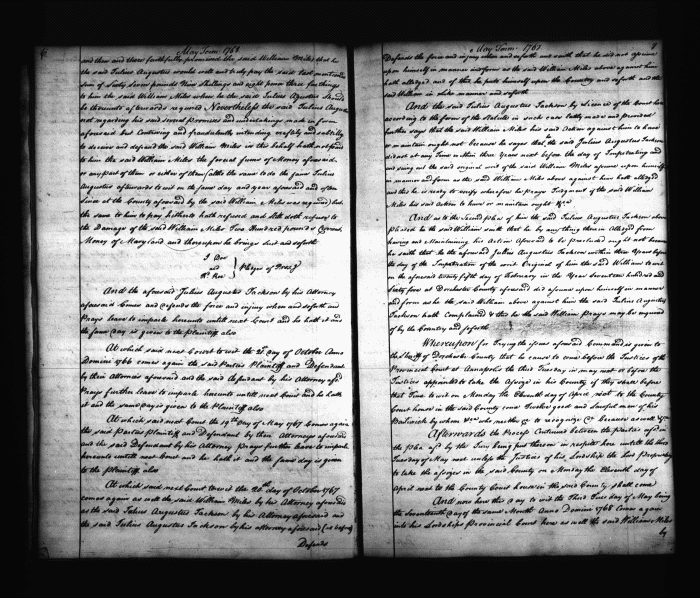 May Term 1768
and then and there faithfully promised the said William Miles that he
the said Julius Augustus would well and truly pay the said last mentioned
sum of Sixty Seven pounds Nine Shillings and eight pence three farthings
to him the said William Miles when he the said Julius Augustus should
be thereunto afterwards required Nevertheless the said Julius Augustus
not regarding his said several promises and undertakings made in form
aforesaid but Contriving and fraudulently intending craftily and subtilly
to deceive and defraud the said William Miles in this behalf hath not paid
to him the said William Miles the several sums of Money aforesaid
or any part of them or either of them (altho the same to do the said Julius
Augustus afterwards to wit on the same day and year aforesaid and often
since at the County aforesaid by the said William Miles was required) but
the same to him to pay hitherto hath refused and still doth refuse to
the Damage of the said William Miles Two Hundred pounds Current
Money of Maryland and thereupon he brings suit and soforth
J Doe
and
Rd Roe
Pledges of Prosy
And the aforesaid Julius Augustus Jackson by his Attorney
aforesaid Comes and defends the force and injury when and soforth and
Prays leave to imparle hereunto until next Court and he hath it was
the same day is given to the plaintiff also
At which said next Court to wit the 21st day of October Anno
Domini 1766 comes again the said Parties Plaintiff and Defendant
by their Attornies aforesaid and the said Defendant by his Attorney afd
Prays further leave to imparle hereunto until next Court and he hath
it and the same day is given to the Plaintiff also
At which said next Court the 19th Day of May 1767 Comes again
the said Parties Plaintiff and Defendant by their Attornies aforesaid
and the said Defendant by his Attorney prays further leave to imparle
hereunto until next Court and he hath it and the same day is given
to the plaintiff also
At which said next Court to wit the 20th day of October 1767
comes again as well the said William Miles by his Attorney aforesaid
as the said Julius Augustus Jackson by his Attorney aforesaid and
the said Julius Augustus Jackson by his attorney aforesaid (as before)
Defends
May Term 1768
Defends the force and injury when and soforth and saith that he did not assume
upon himself in manner and form as the said William Miles above against him
hath alledged and of this he puts himself upon the Country and soforth and the
said William in like manner and soforth
And the said Julius Augustus Jackson by Licence of the Court here
according to the form of the Statute in such case lately made and provided
further says that the said William Miles his said Action against him to have
or maintain ought not because he says that the said Julius Augustus Jackson
did not at any Time within three Years next before the day of Impetrating and
and suing out the said original writ of the said William Miles assume upon himself
in manner and form as the said William Miles above against him hath alledged
and this he is ready to verify wherefore he prays Judgment if the said William
Miles his said Action to have or maintain ought &ca
And as to the second plea of him the said Julius Augustus Jackson above
Pleaded to the said William saith that he by any thing therein Alledged from
having and Maintaining his Action Aforesaid to be Precluded ought not because
he saith that he the aforesaid Julius Augustus Jackson within three Years before
the day of the Impetration of the said Original of him the said Williams to wit
on the aforesaid twenty fifth day of February in the Year Seventeen hundred and
Sixty four at Dorchester County aforesaid did assume upon himself in manner
and form as he the said William above against him the said Julius Augustus
Jackson hath Complained & this he the said William Prays may be inquired
of by the Country and soforth
Whereupon for Trying the issues aforesaid Command is given to
the Sheriff of Dorchester County that he cause to come before the Justices of the
Provincial Court at Annapolis the third Tuesday in may next or before the
Justices appointed to take the Assizes in his County if they shall before
that Time to wit on Monday the Eleventh day of April next to the County
Court house in the said County come Twelve good and Lawful men of his
Bailiwick by whom &ca who neither &ca to recognize &ca because as well &ca
Afterwards the Process Continued between the parties afsd in
the plea afsd by the Jury being put thereon in respite here until the third
Tuesday of May next unless the Justices of his Lordship the Lord Proprietary
to take the assizes in the said County on Monday the Eleventh day of
April next to the County Court house in the said County shall come
And now here this day to wit the Third Tuesday of May being
the Seventeenth day of the same Month Anno Domini 1768 Comes again
into his Lordships Provincial Court here as well the said William Miles
by